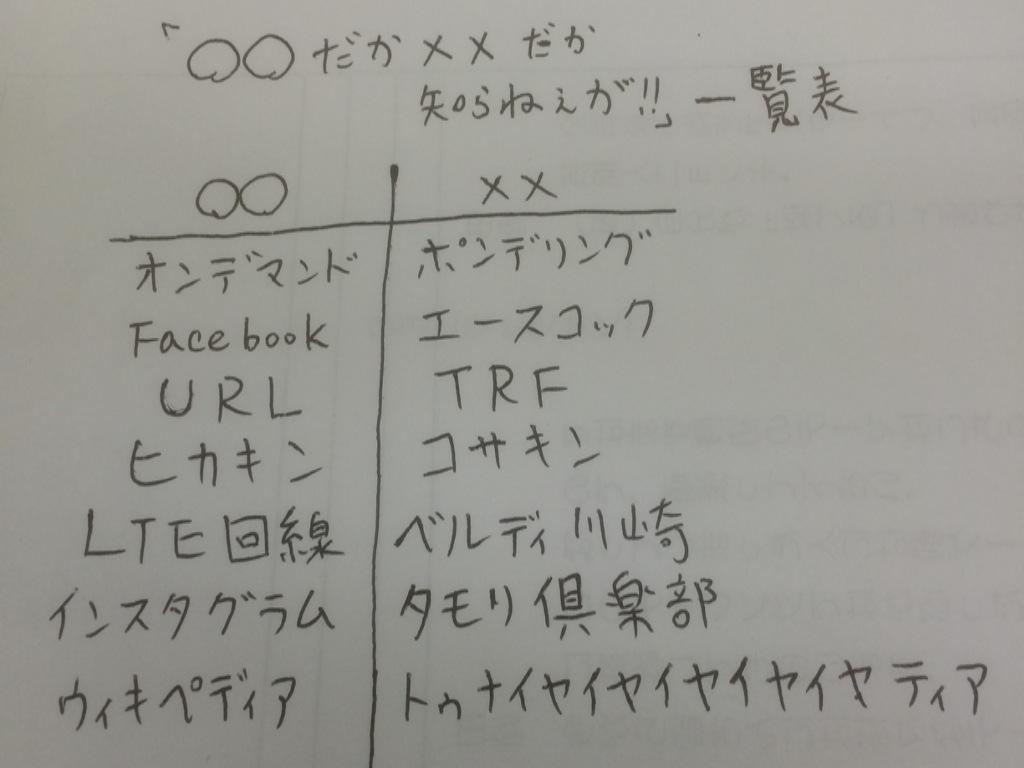 「〇〇だか××だか
知らねぇが!!」一覧表
〇〇 ××
オンデマンド ポンデリング
Facebook エースコック
URL TRF
ヒカキン コサキン
LTE回線 ベルディ川崎
インスタグラム タモリ倶楽部
ウィキペディア トゥナイヤイヤイヤイヤイヤティア